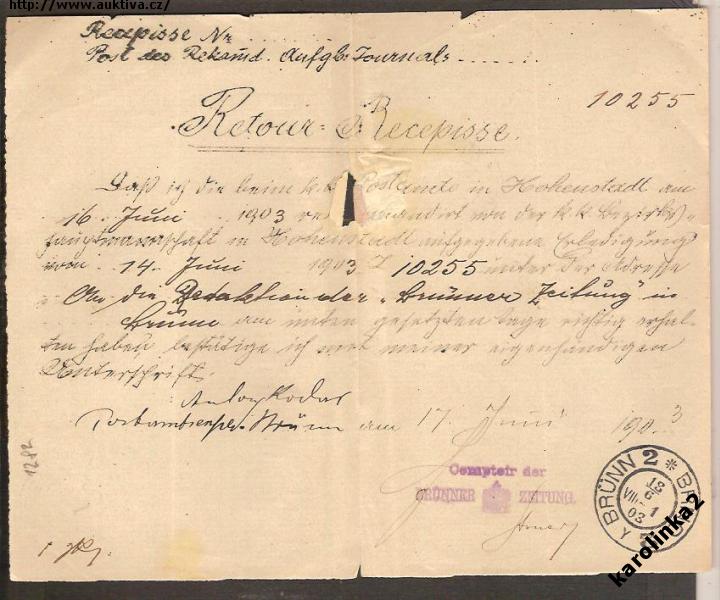 http://www.auktiva.cz/
Recepisse Nr. ......
Post des Rekomd. Aufgbs Journals ......
10255
Retour-Recepisse.
Daß ich die beim k.k. Postamte in Hohenstadt am
16. Juni 1903 rekommandirt von der k.k. Bezirks-
hauptmannschaft in Hohenstadt aufgegebene Erledigung
vom 14. Juni 1903 Z 10255 unter der Adresse
An die Redaktion der „Brünner Zeitung" in
Brünn am unten gesetzten Tage richtig erhal-
ten haben bestätige ich mit meiner eigenhändigen
Unterschrift.
Brünn am 17. Juni 1903
Comptoir der
BRÜNNER ZEITUNG.
BRÜNN 2 * BR
18
6
VIII- 1
03
1282
karolinka2